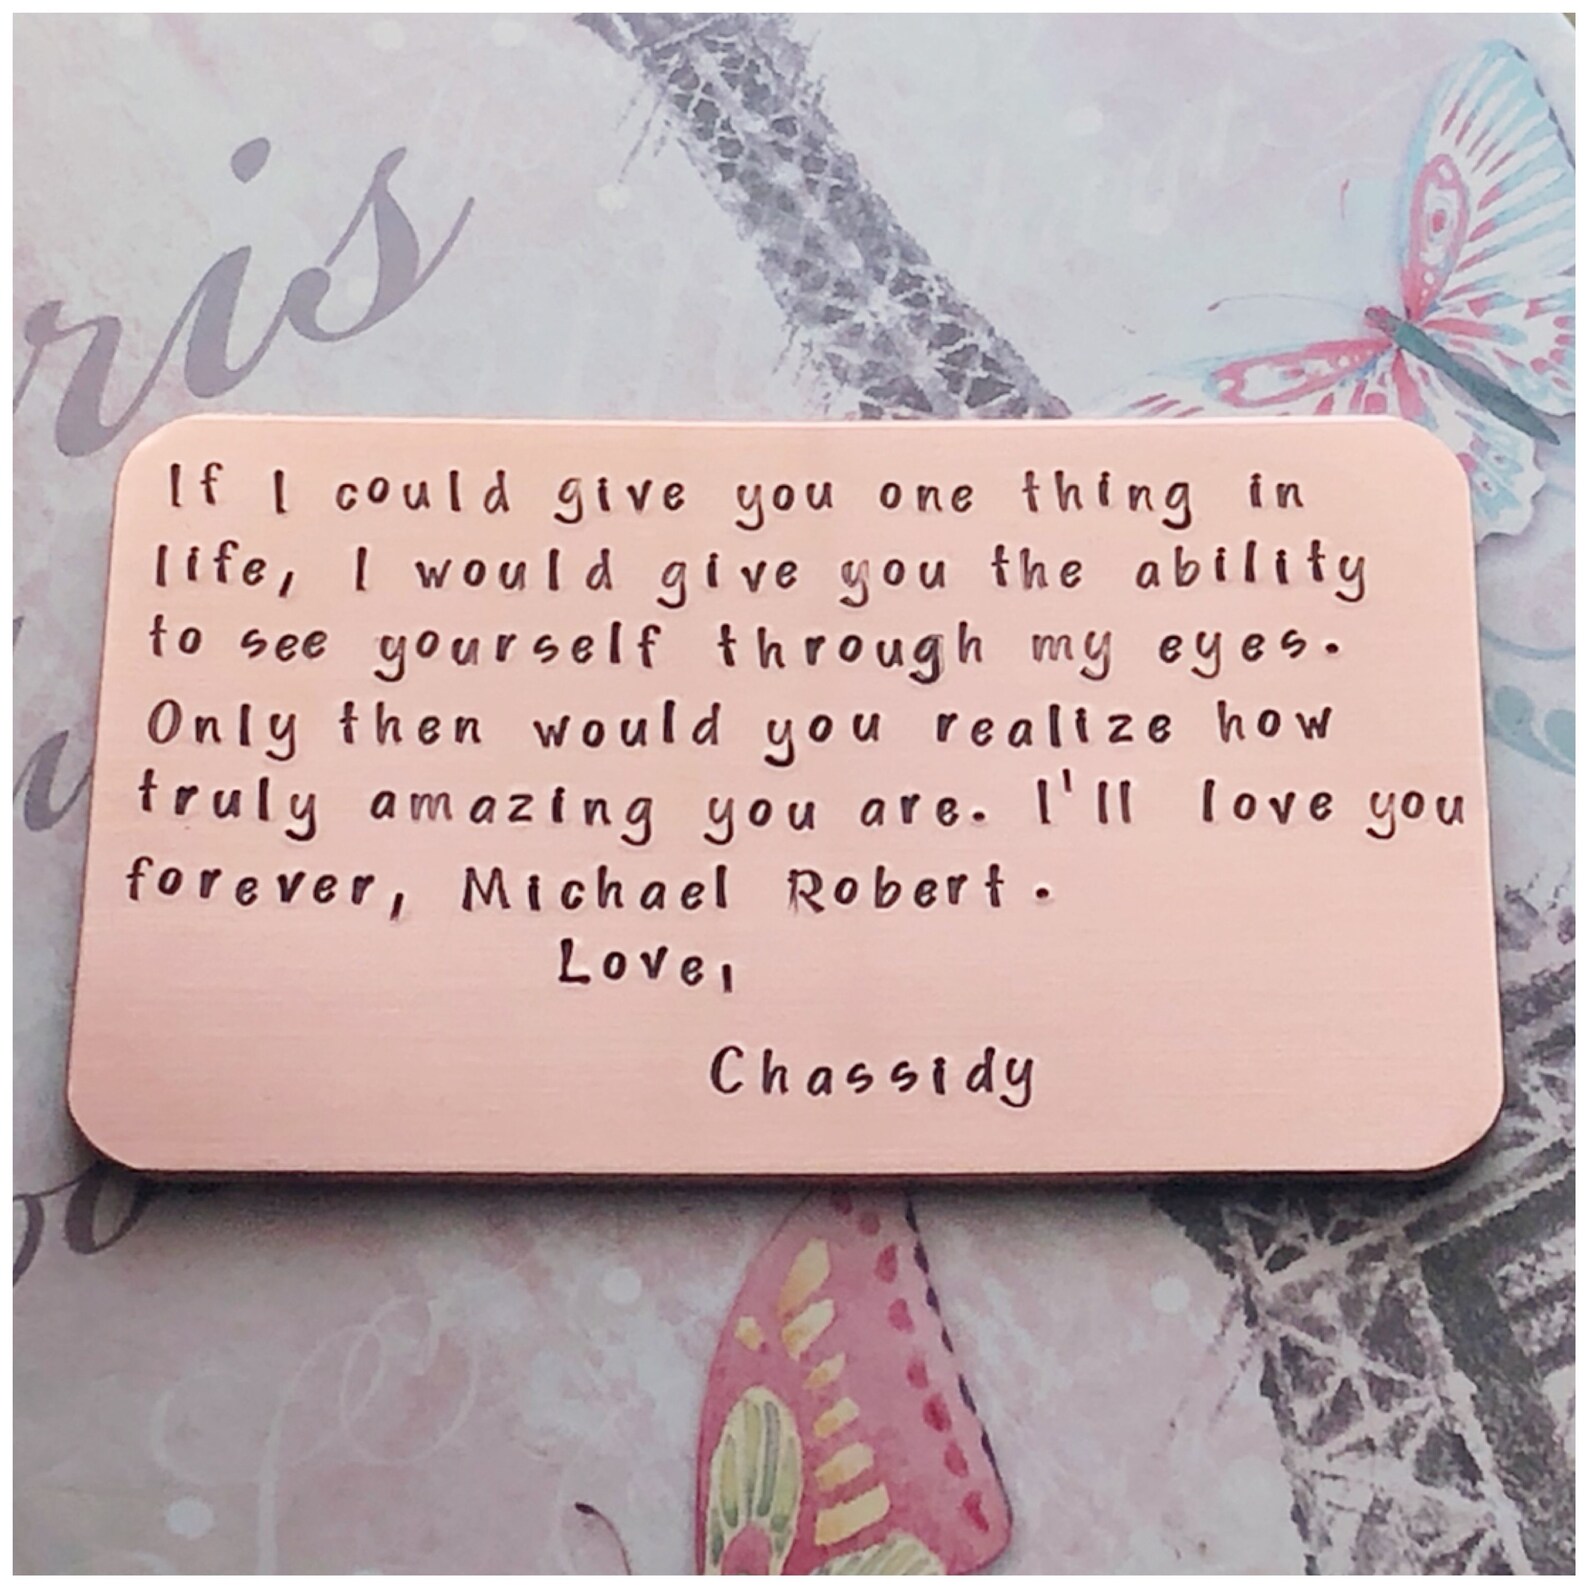 ris
If I could give you one thing in
life, I would give you the ability
to see yourself through my eyes.
Only then would you realize how
truly amazing you are. I'll love you
forever, Michael Robert.
Love,
Chassidy